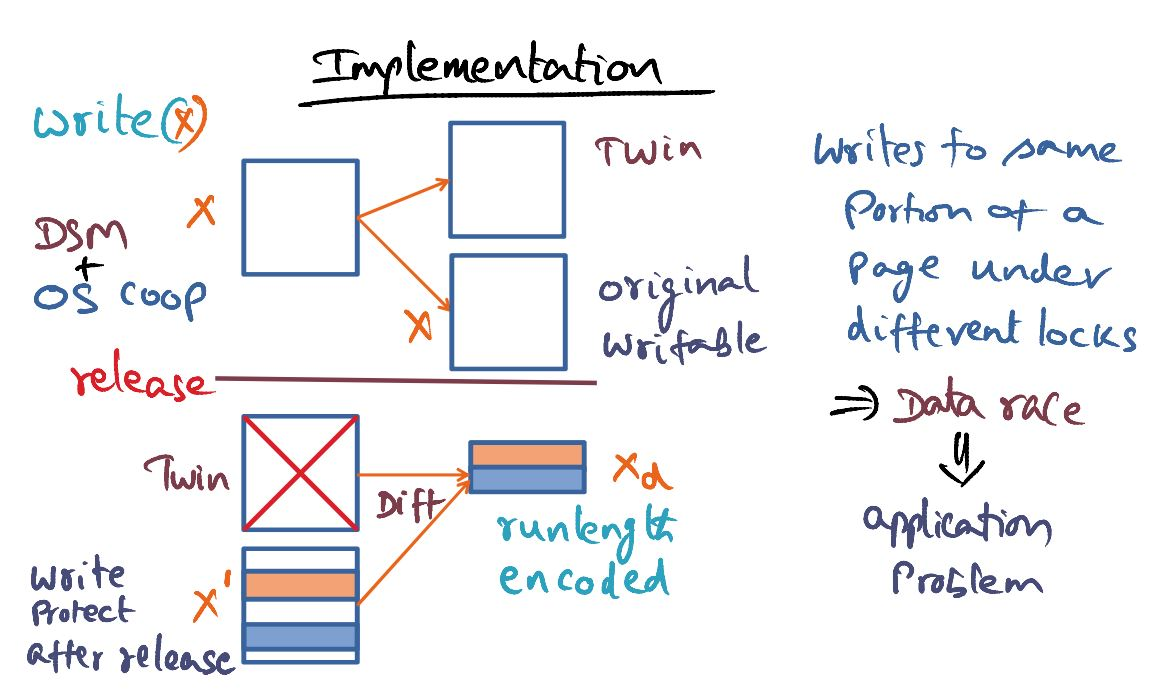 Implementation
write(x)
X
DSM
+
OS coop
Twin
X
original
writable
release
Twin
Diff
Xd
runlength
encoded
write
Protect
after release
X'
writes to same
portion of a
page under
different locks
⇒ Data race
⇓
application
problem